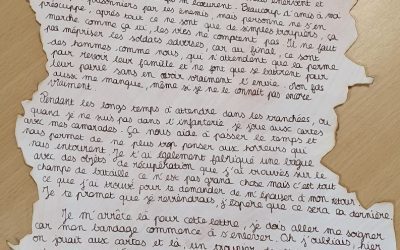 prisonniers par les ennemis, mais personne ne s'en
préoccupe : après tout ce ne sont que de simples troupiers, ça
marche comme ça ici, les vies ne comptent pas. Il ne faut
pas mépriser les soldats adverses, car au final, ce sont
des hommes comme nous, qui n'attendent que la permission
pour revoir leur famille et ne font que se battre pour
leur patrie sans en avoir vraiment l'envie. Mon fils
aussi me manque, même si je ne le connaît pas encore
vraiment
Pendant les longs temps d'attente dans les tranchées, ou
quand je ne suis pas dans l'infanterie, je joue aux cartes
avec mes camarades. Ça nous aide à passer le temps et
nous permet de ne plus trop penser aux horreurs qui
nous entourent. Je t'ai également fabriqué une bague
avec des objets de récupération que j'ai trouvés sur le
champ de bataille ce n'est pas grand chose mais c'est tout
ce que j'ai trouvé pour te demander de m'épouser à mon retour
Je te promet que je reviendrai, j'espère que ce sera la dernière.
Je m'arrête là pour cette lettre, je dois aller me soigner
car mon bandage commence à s'enlever. Oh j'oubliais, hier
on jouait aux cartes et là, un troupier